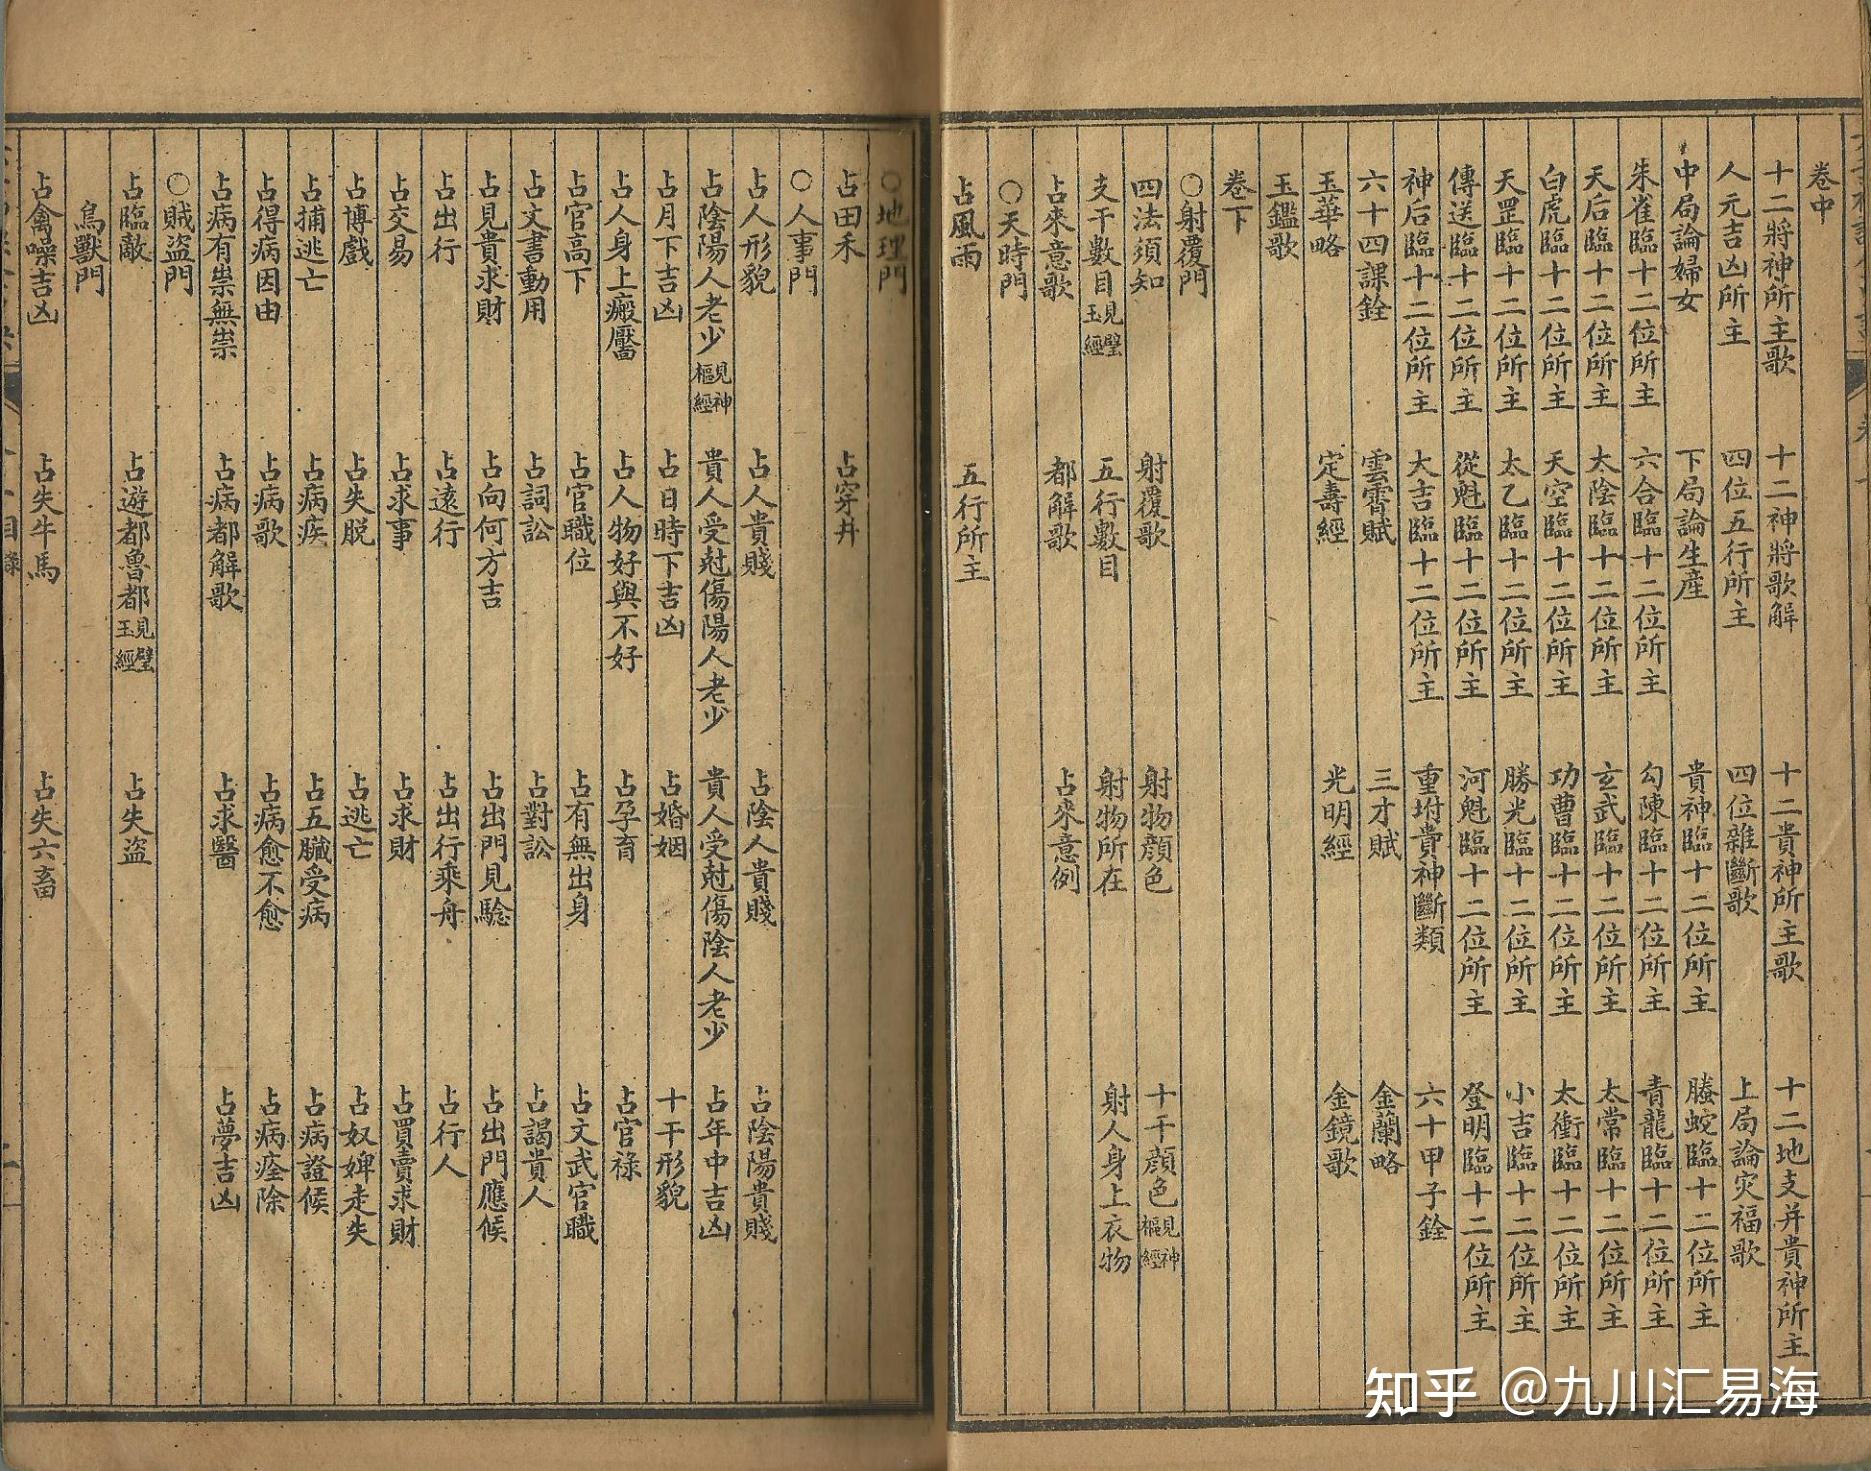 卷中
十二將神所主歌　十二神將歌解　十二貴神所主歌　十二地支并貴神所主
人元吉凶所主　四位五行所主　四位雜斷歌　上局論灾福歌
中局論婦女　下局論生産　貴神臨十二位所主　螣蛇臨十二位所主
朱雀臨十二位所主　六合臨十二位所主　勾陳臨十二位所主　青龍臨十二位所主
天后臨十二位所主　太陰臨十二位所主　玄武臨十二位所主　太常臨十二位所主
白虎臨十二位所主　天空臨十二位所主　功曹臨十二位所主　太衝臨十二位所主
天罡臨十二位所主　太乙臨十二位所主　勝光臨十二位所主　小吉臨十二位所主
傳送臨十二位所主　從魁臨十二位所主　河魁臨十二位所主　登明臨十二位所主
神后臨十二位所主　大吉臨十二位所主　重坿貴神斷類　六十甲子銓
六十四課銓　雲霄賦　三才賦　金蘭略
玉華略　定壽經　光明經　金鏡歌
玉鑑歌
卷下
○射覆門
四法須知　射覆歌　射物顔色　十干顔色見神樞經
支干數目見璧玉經　五行數目　射物所在　射人身上衣物
占來意歌　都解歌　占來意例
○天時門
占風雨　五行所主
○地理門
占田禾　占穿井
○人事門
占人形貌　占人貴賤　占陰人貴賤　占陰陽貴賤
占陰陽人老少見神樞經　貴人受尅傷陽人老少　貴人受尅傷陰人老少　占年中吉凶
占月下吉凶　占日時下吉凶　占婚姻　十干形貌
占人身上瘢黶　占人物好與不好　占孕育　占官祿
占官高下　占官職位　占有無出身　占文武官職
占文書動用　占詞訟　占對訟　占謁貴人
占見貴求財　占向何方吉　占出門見騐　占出門應候
占出行　占遠行　占出行乘舟　占行人
占交易　占求事　占求財　占買賣求財
占博戲　占失脱　占逃亡　占奴婢走失
占捕逃亡　占病疾　占五臟受病　占病證候
占得病因由　占病歌　占病愈不愈　占病痊除
占病有祟無祟　占病都解歌　占求醫　占夢吉凶
○賊盜門
占臨敵　占遊都魯都見璧玉經　占失盜
鳥獸門
占禽噪吉凶　占失牛馬　占失六畜
知乎 @九川汇易海